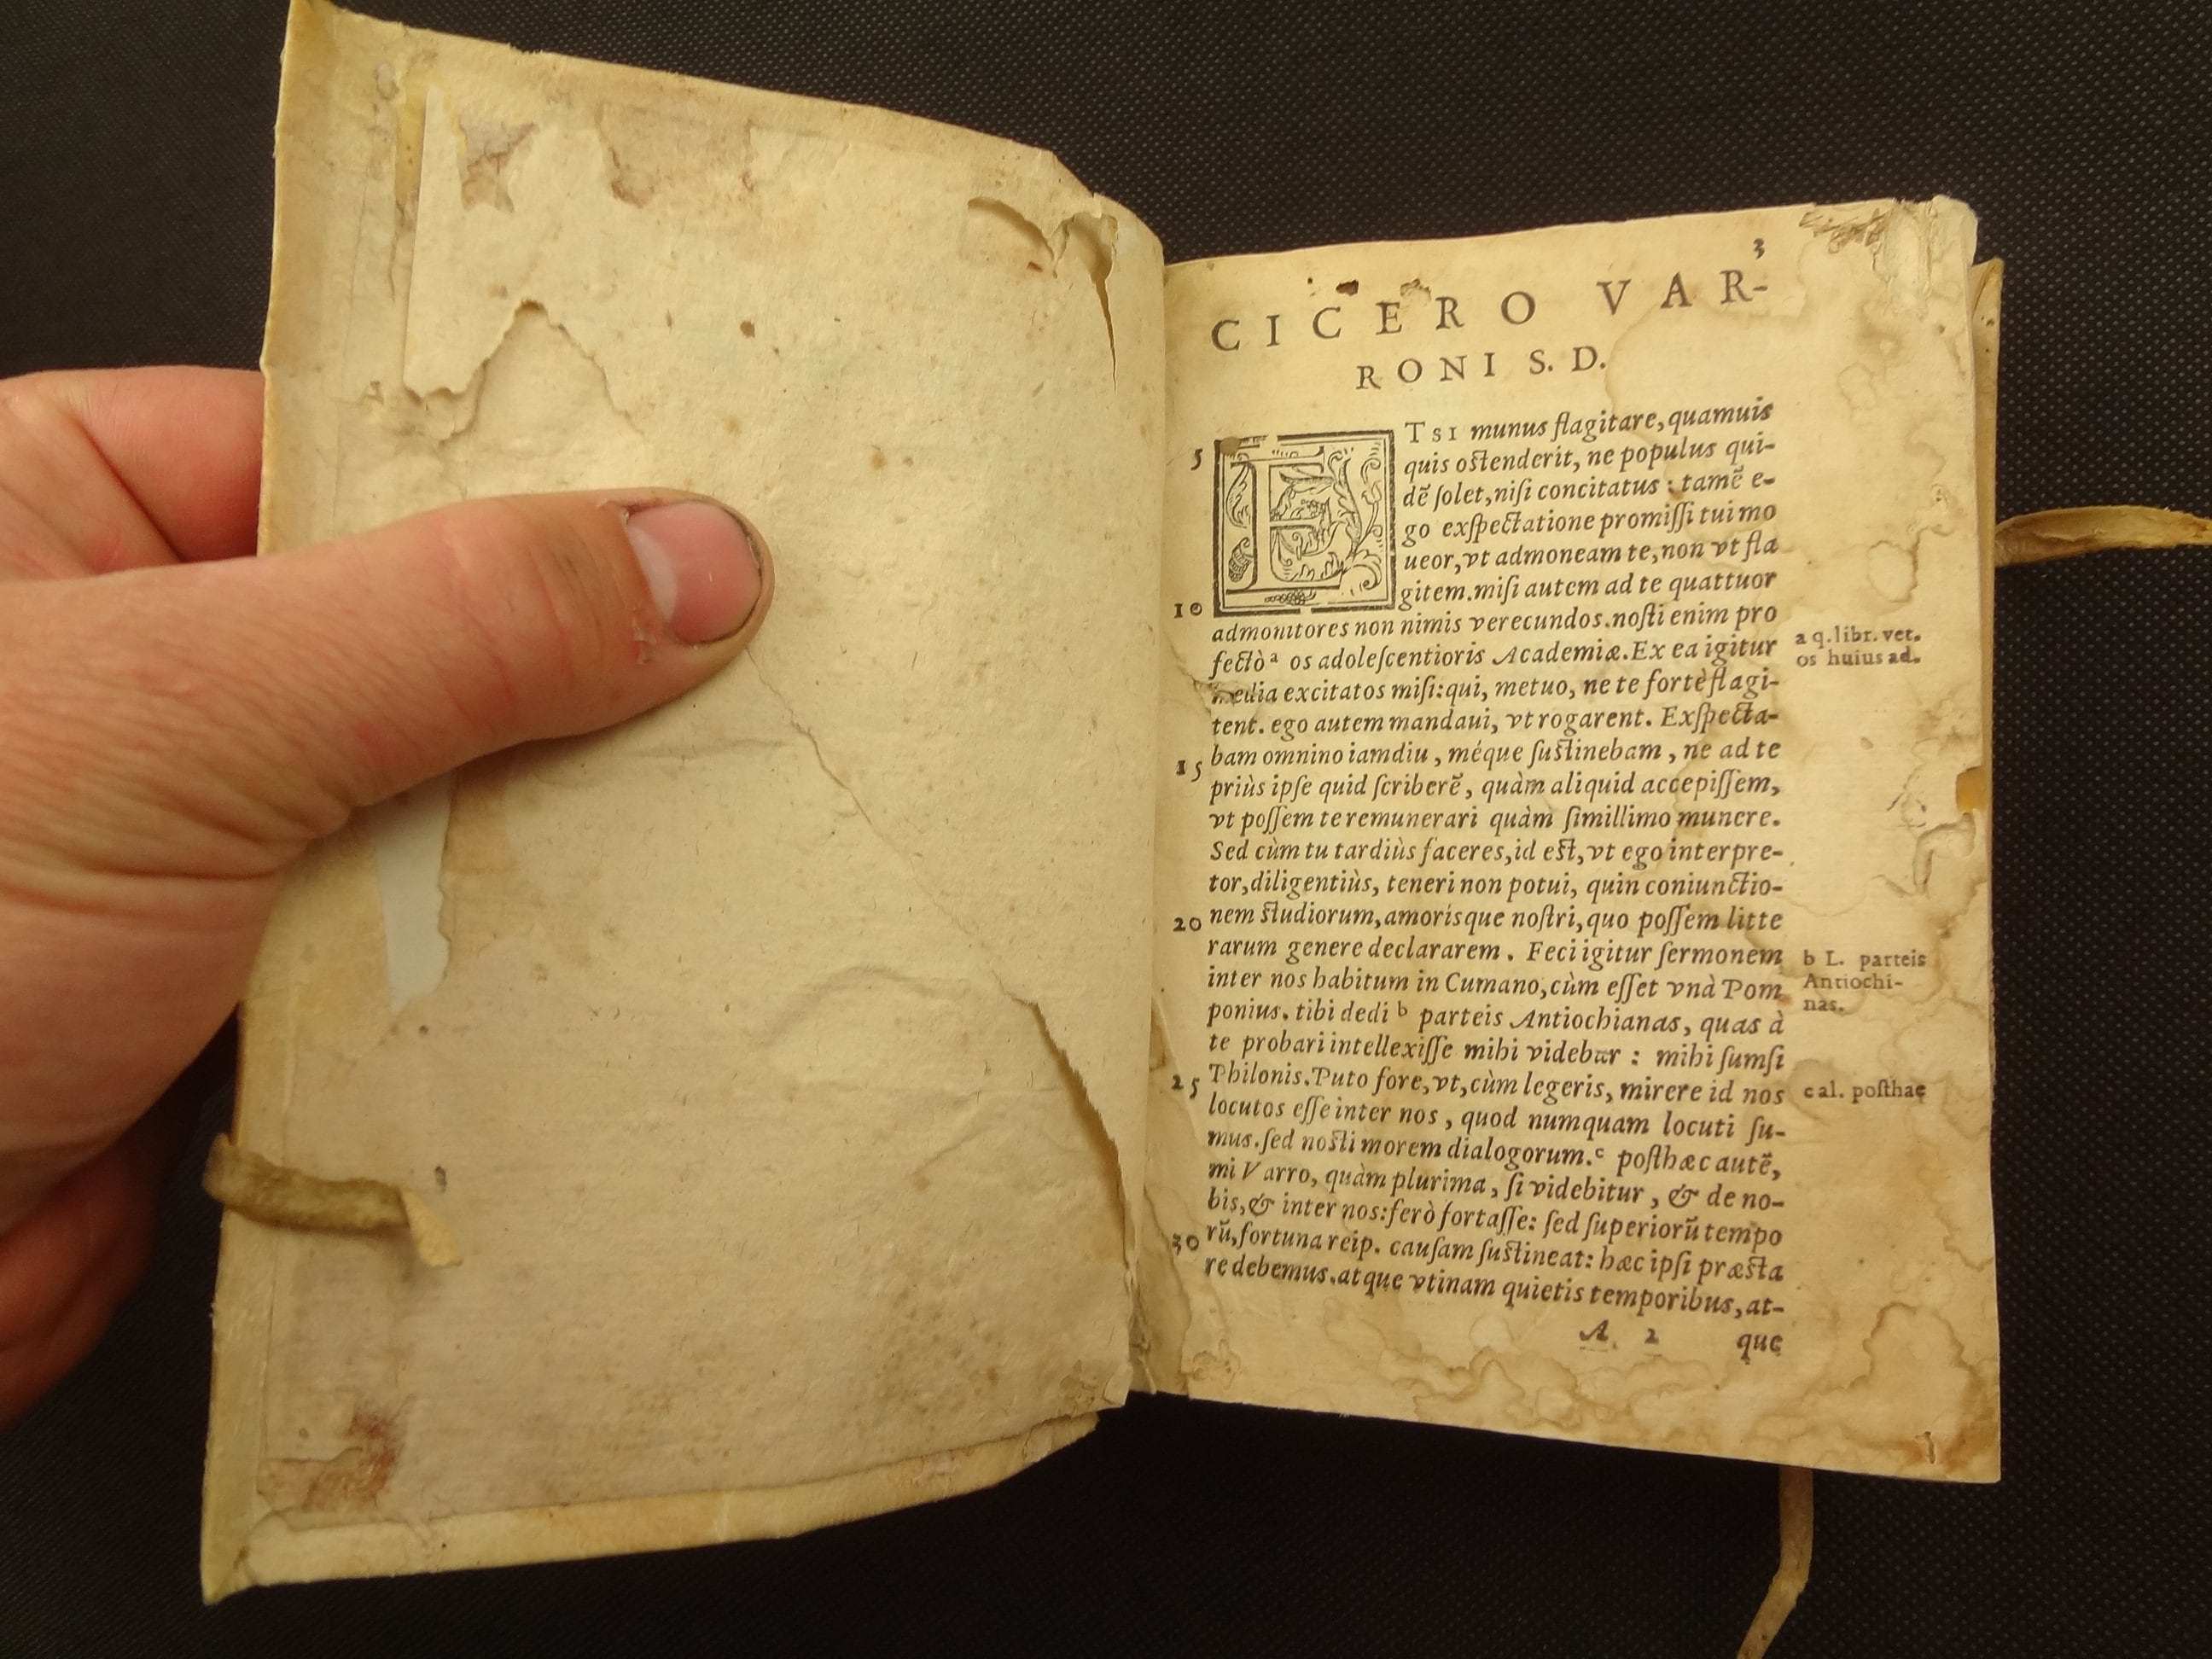 3
CICERO VAR-
RONI S. D.
ETSI munus flagitare, quamuis
5 quis ostenderit, ne populus qui-
dẽ ſolet, niſi concitatus: tamẽ e-
go exſpectatione promiſſi tui mo
ueor, vt admoneam te, non vt fla
gitem. miſi autem ad te quattuor
10 admonitores non nimis verecundos. noſti enim pro
fectò a os adoleſcentioris Academiæ. Ex ea igitur
a q. libr. vet.
os huius ad.
media excitatos miſi: qui, metuo, ne te fortè flagi-
tent. ego autem mandaui, vt rogarent. Exſpecta-
15 bam omnino iamdiu, méque ſustinebam, ne ad te
priùs ipſe quid ſcriberẽ, quàm aliquid accepiſſem,
vt poſſem te remunerari quàm ſimillimo munere.
Sed cùm tu tardiùs faceres, id est, vt ego interpre-
tor, diligentiùs, teneri non potui, quin coniunctio-
20 nem studiorum, amorisque noſtri, quo poſſem litte
rarum genere declararem. Feci igitur ſermonem
inter nos habitum in Cumano, cùm eſſet vnà Pom
ponius. tibi dedi b parteis Antiochianas, quas à
b L. parteis
Antiochi-
nas.
te probari intellexiſſe mihi videbar: mihi ſumſi
25 Philonis. Puto fore, vt, cùm legeris, mirere id nos
locutos eſſe inter nos, quod numquam locuti ſu-
mus. ſed nosti morem dialogorum. c poſthæc autẽ,
c al. poſthac
mi Varro, quàm plurima, ſi videbitur, & de no-
bis, & inter nos: ſerò fortaſſe: ſed ſuperiorũ tempo
30 rũ, fortuna reip. cauſam ſustineat: hæc ipſi præsta
re debemus. atque vtinam quietis temporibus, at-
A 2 que